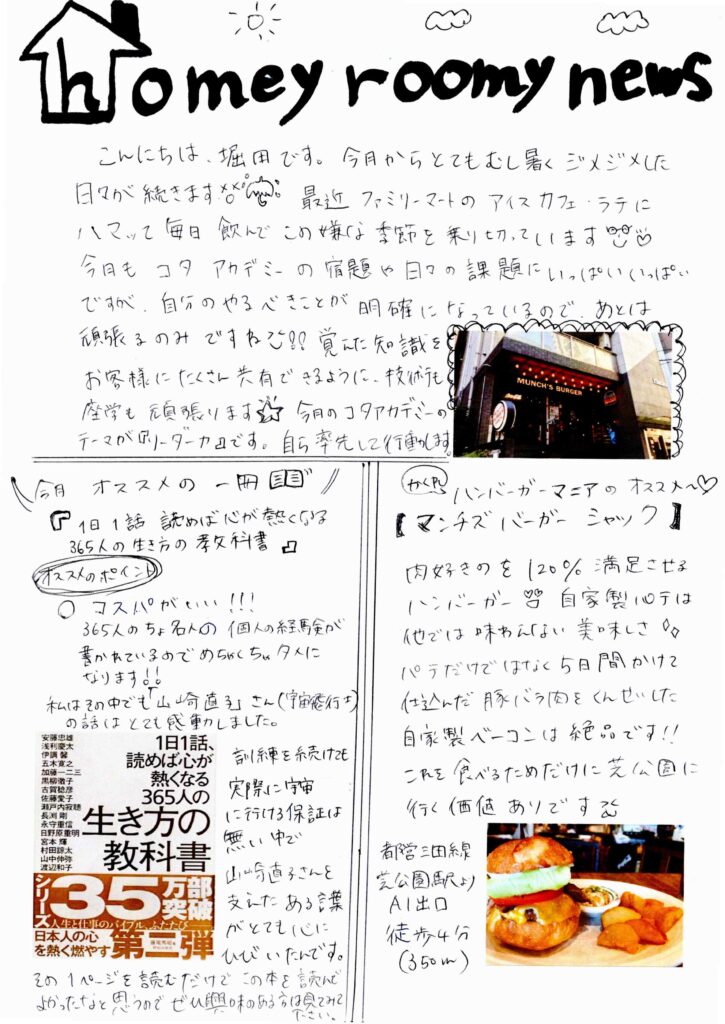 homey roomy news
こんにちは、堀田です。今月からとてもむし暑く ジメジメした
日々が続きます 最近 ファミリーマートの アイス カフェ・ラテに
ハマって 毎日 飲んで この嫌な 季節を 乗り切っています
今月も コタ アカデミーの 宿題や 日々の 課題に いっぱいいっぱい
ですが、自分のやるべきことが 明確に なっているので、あとは
頑張るのみ ですね!! 覚えた 知識を
お客様に たくさん 共有できるように、技術も
座学も 頑張ります☆ 今月のコタアカデミーの
テーマが『リーダーカ』です。自ら率先して行動します。
MUNCH'S BURGER
今月 オススメの 一冊
『1日1話 読めば心が熱くなる
365人の生き方の教科書』
オススメのポイント
○ コスパがいい!!!
365人のちょ名人の 個人の経験が
書かれているので めちゃくちゃタメに
なります!!
私はその中でも「山崎直子」さん(宇宙飛行士)
の話は とても感動しました。
安藤忠雄
浅利慶太
伊調 馨
五木寛之
加藤一二三
黒柳徹子
古賀稔彦
佐藤愛子
瀬戸内寂聴
長渕 剛
永守重信
日野原重明
宮本 輝
村田諒太
山中伸弥
渡辺和子
1日1話、
読めば心が
熱くなる
365人の
生き方の
教科書
シリーズ35万部突破
人生と仕事のバイブル、ふたたび
日本人の心を熱く燃やす 第二弾
訓練を続けても
実際に宇宙
に行ける保証は
無い中で
山崎直子さんを
支えた ある言葉
がとても心に
ひびいたんです。
その1ページを読むだけで この本を 読んで
よかったなと 思うので ぜひ興味のある方は見てみて
ださい。
かくれ ハンバーガーマニアの オススメ〜♡
【マンチズ バーガー シャック】
肉好きのを 120% 満足させる
ハンバーガー 自家製パテは
他では 味わえない 美味しさ
パテだけではなく 5日間かけて
仕込んだ 豚バラ肉を くんせいした
自家製ベーコンは 絶品です!!
これを 食べるためだけに 芝公園に
行く 価値 ありです
都営三田線
芝公園駅より
A1出口
徒歩4分
(350m)